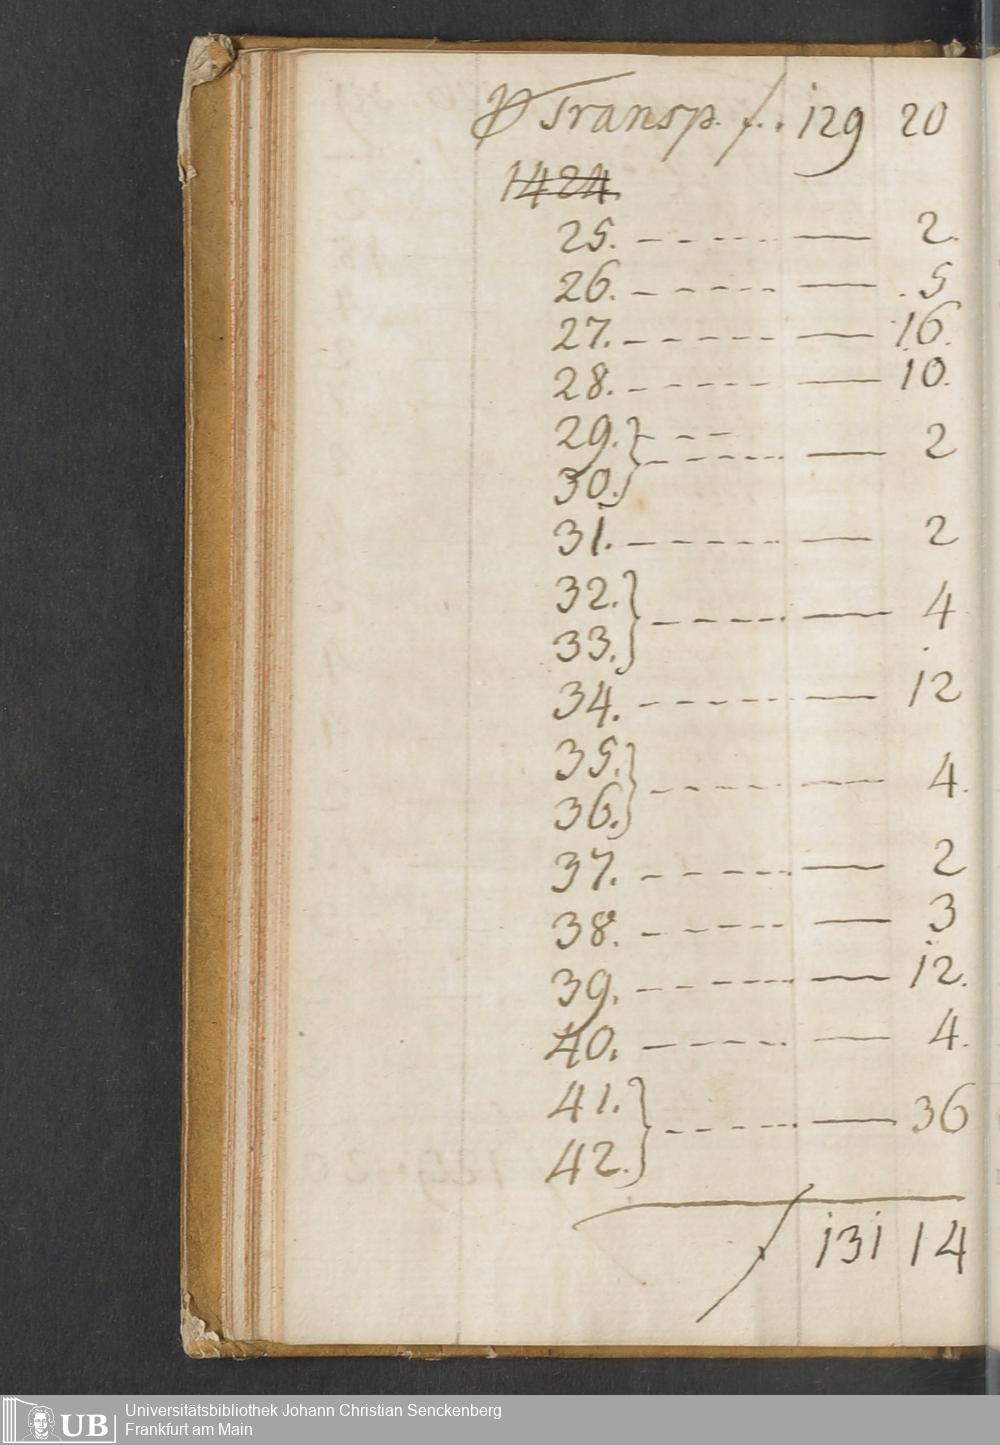 P Transp. f. . 129 20
1424
25. - - - - - — 2.
26. - - - - - — 5
27. - - - - - — 16.
28. - - - - - — 10.
29.} - - -
30.} - - - - - — 2
31. - - - - - — 2
32.}
33.} - - - - - — 4
34. - - - - - — 12
35.}
36.} - - - - - — 4.
37. - - - - - — 2
38. - - - - - — 3
39. - - - - - — 12.
40. - - - - - — 4.
41.}
42.} - - - - - — 36
f 131 14
UB Universitätsbibliothek Johann Christian Senckenberg
Frankfurt am Main